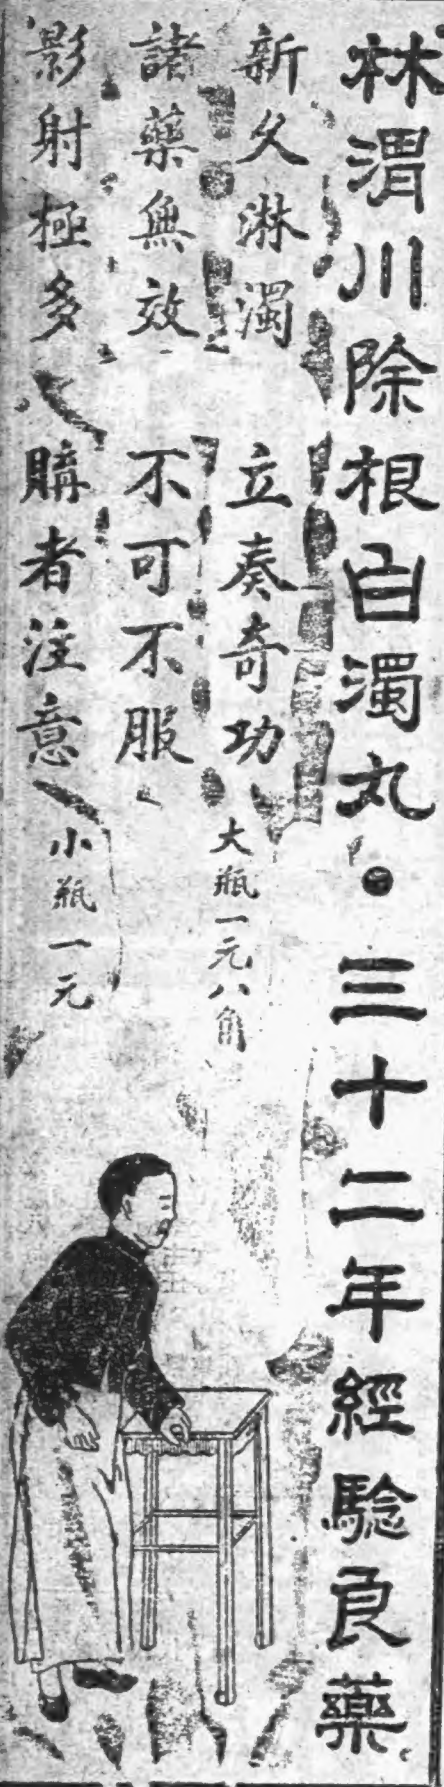 林渭川除根白濁丸•三十二年經驗良藥
新久淋濁 立奏奇功 大瓶一元八角
諸藥無效 不可不服
影射極多 購者注意 小瓶一元